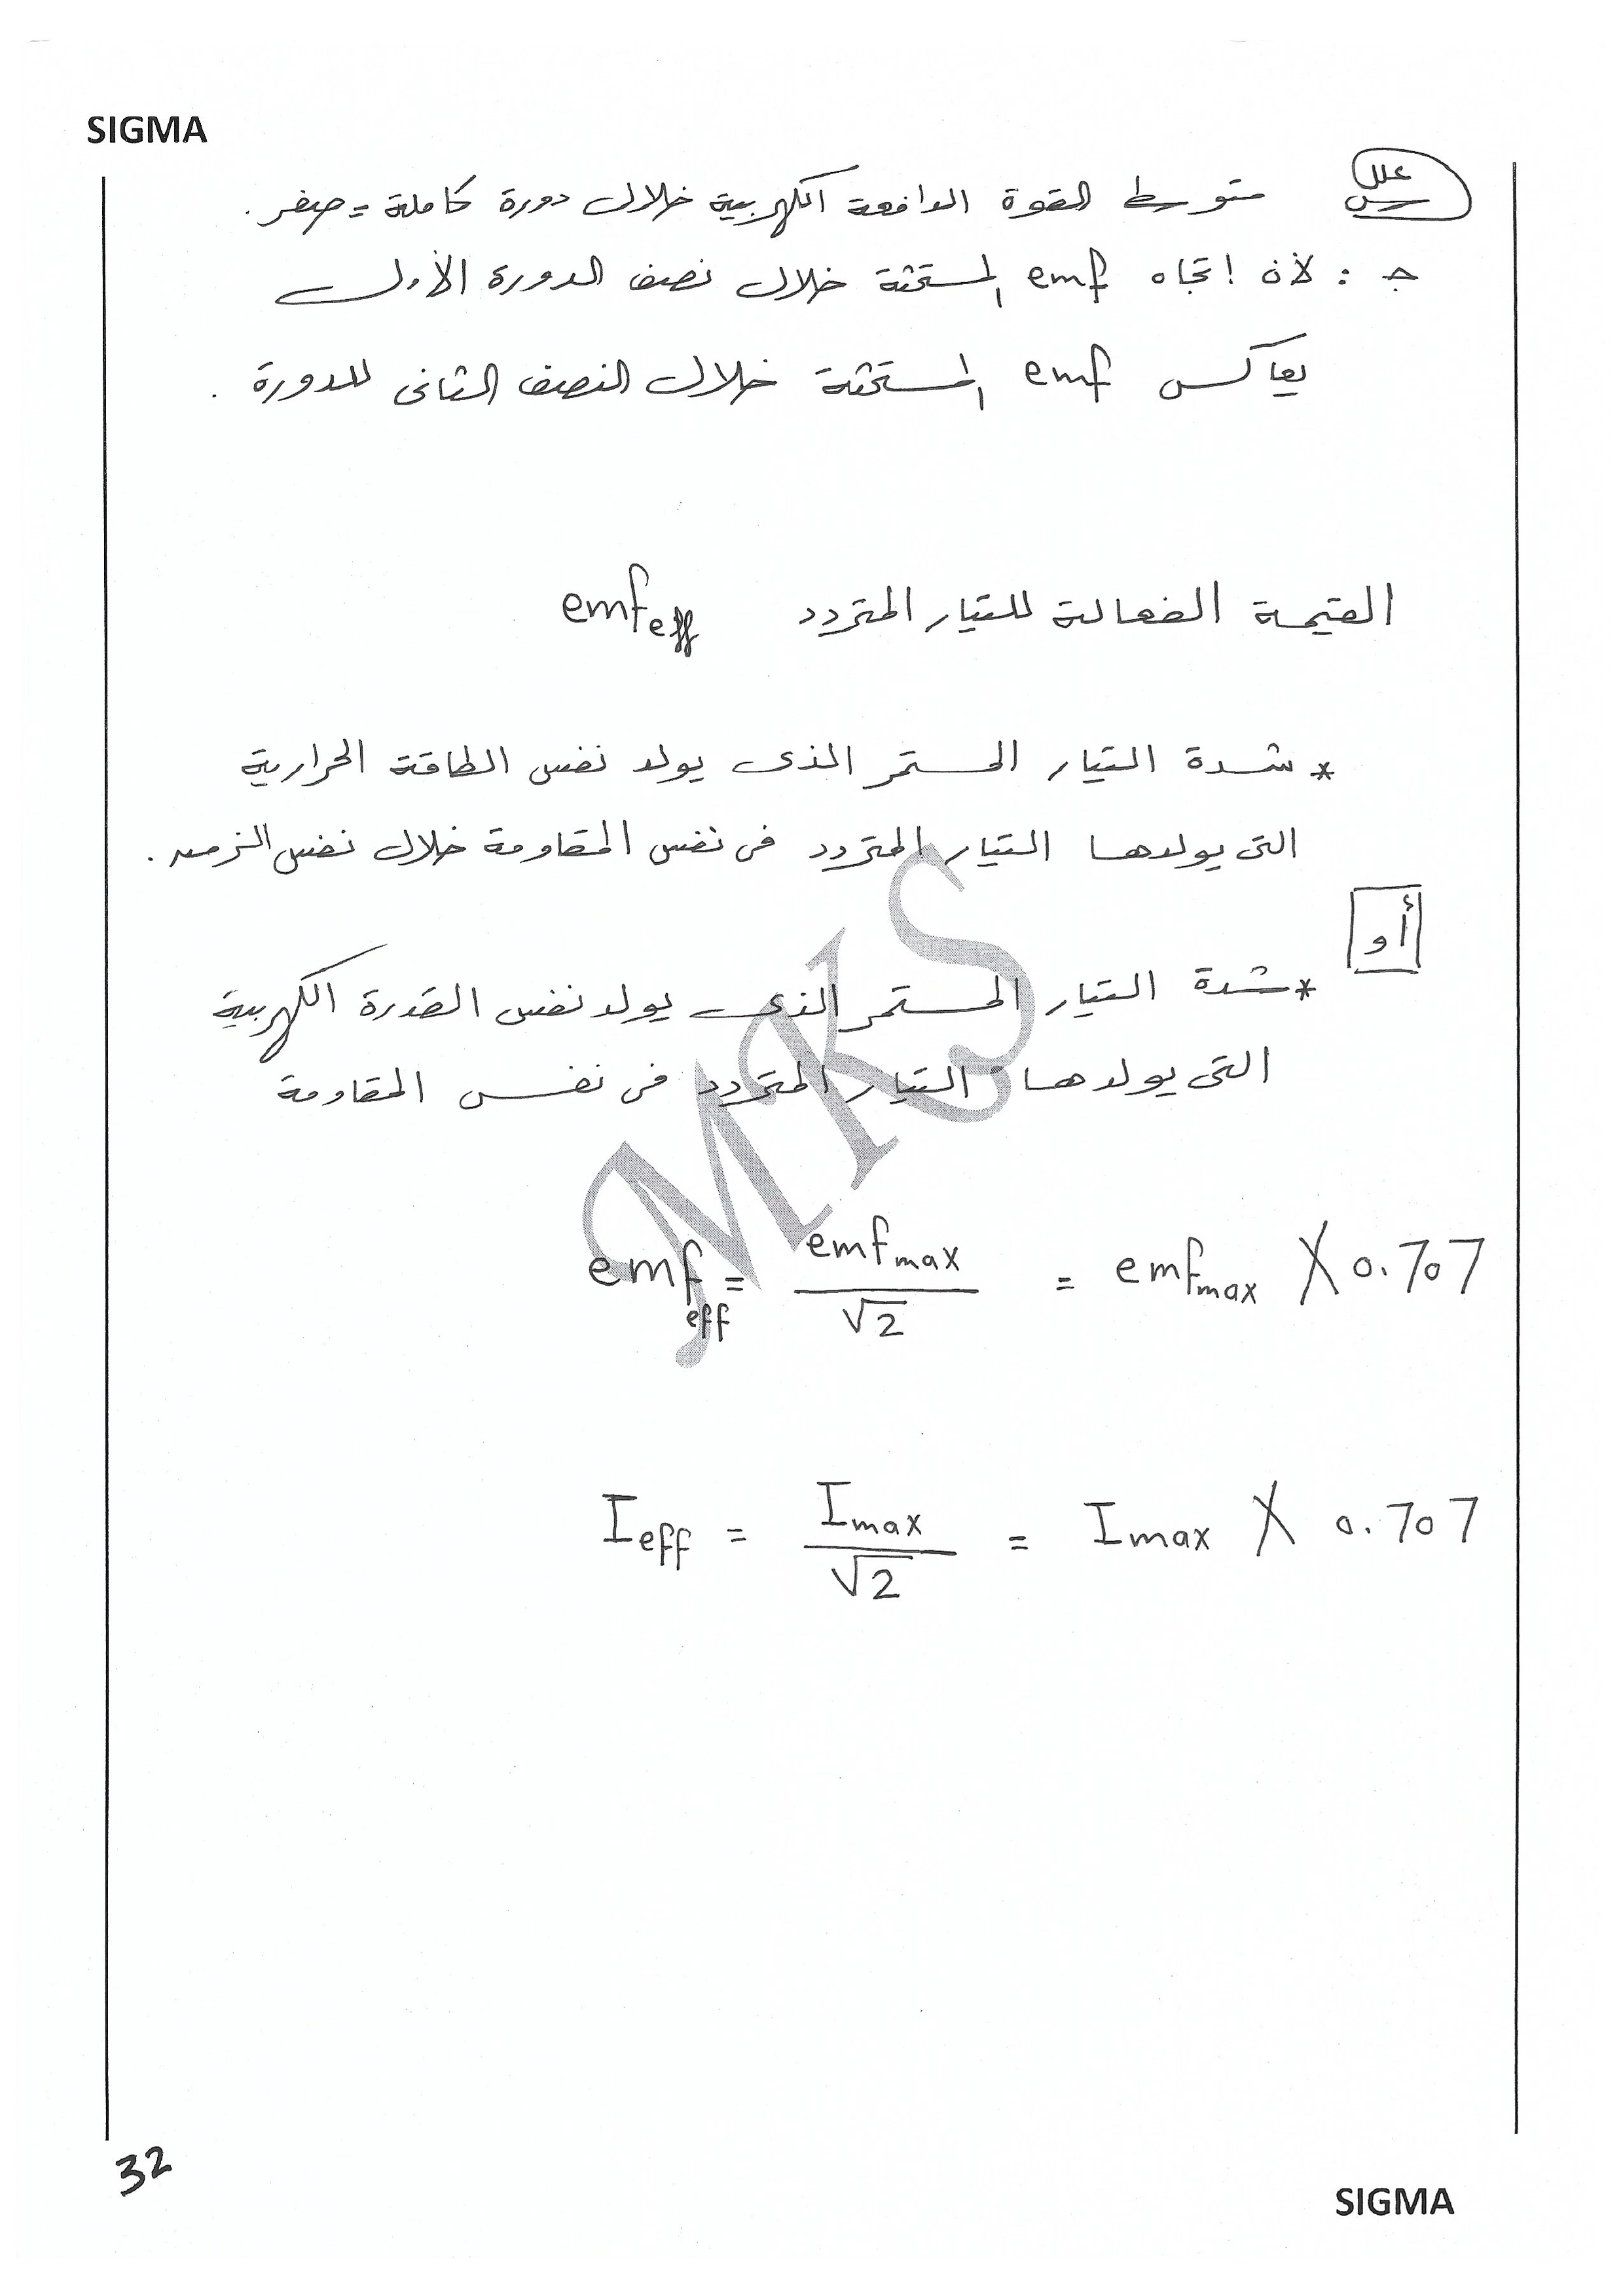 SIGMA
علل س متوسط القوة الدافعة الكهربية خلال دورة كاملة = صفر .
جـ : لأن إتجاه emf المستحثة خلال نصف الدورة الأول
يعاكس emf المستحثة خلال النصف الثانى للدورة .
القيمة الفعالة للتيار المتردد emf eff
* شدة التيار المستمر الذى يولد نفس الطاقة الحرارية
التى يولدها التيار المتردد فى نفس المقاومة خلال نفس الزمن .
أو
* شدة التيار المستمر الذى يولد نفس القدرة الكهربية
التى يولدها التيار المتردد فى نفس المقاومة
MKS
emf eff = emf max / √2 = emf max X 0.707
I eff = I max / √2 = I max X 0.707
32
SIGMA